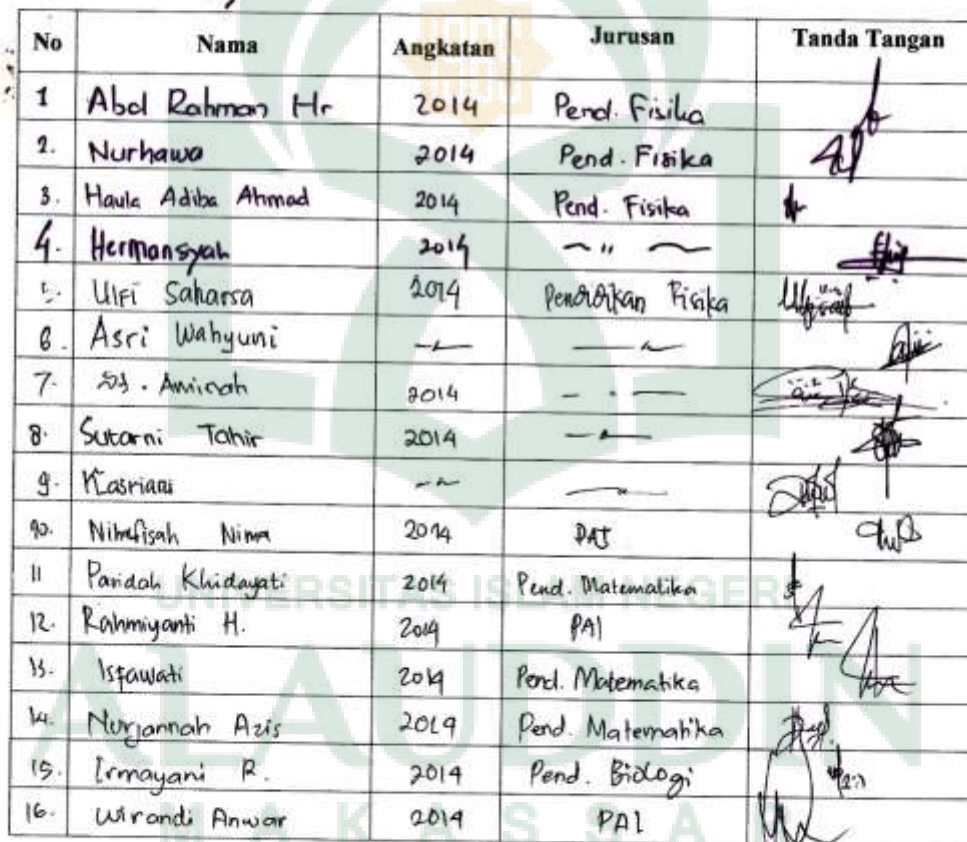 No Nama Angkatan Jurusan Tanda Tangan
1 Abd Rahman Hr 2014 Pend. Fisika
2. Nurhawa 2014 Pend. Fisika
3. Haula Adiba Ahmad 2014 Pend. Fisika
4. Hermansyah 2014 ~ " ~
5. Ulfi Saharsa 2014 Pendidikan Fisika
6. Asri Wahyuni
7. St. Aminah 2014
8. Sutarni Tahir 2014
9. Kasriani
10. Nihafisah Nima 2014 PAI
11 Paridah Khidayati 2014 Pend. Matematika
12. Rahmiyanti H. 2014 PAI
13. Isfawati 2014 Pend. Matematika
14. Nurjannah Azis 2014 Pend. Matematika
15. Irmayani R. 2014 Pend. Biologi
16. Wirandi Anwar 2014 PAI
UNIVERSITAS ISLAM NEGERI
ALAUDDIN
MAKASSAR